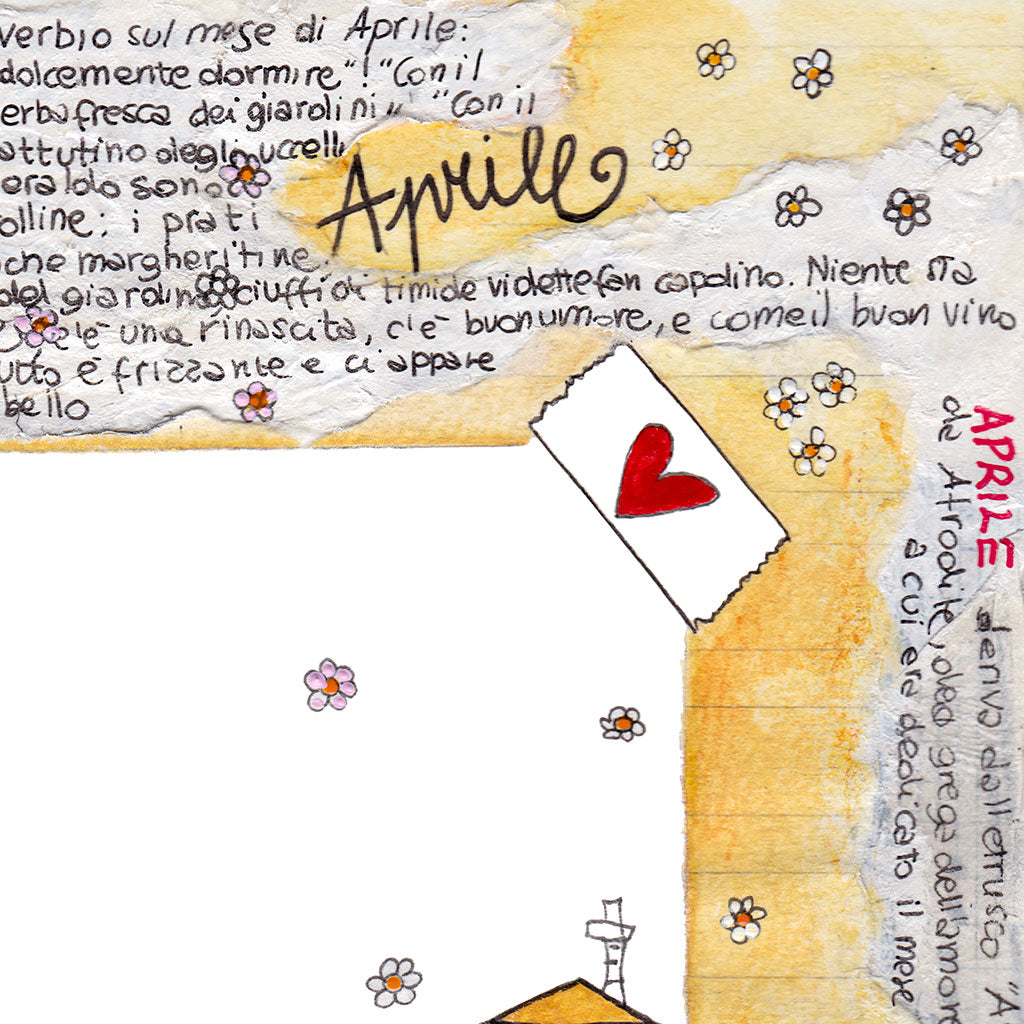 verbio sul mese di Aprile:
dolcemente dormire"! "Con il
erba fresca dei giarolini" "Con il
attutino degli uccelli
eraldo sono
olline; i prati
che margheritine.
del giardino ciuffi di timide violette fan capolino. Niente sta
è una rinascita, c'è buonumore, e come il buon vino
utto è frizzante e ci appare
bello
Aprile
APRILE deriva dall'etrusco "A
da Afrodite, dea greca dell'amore
a cui era dedicato il mese